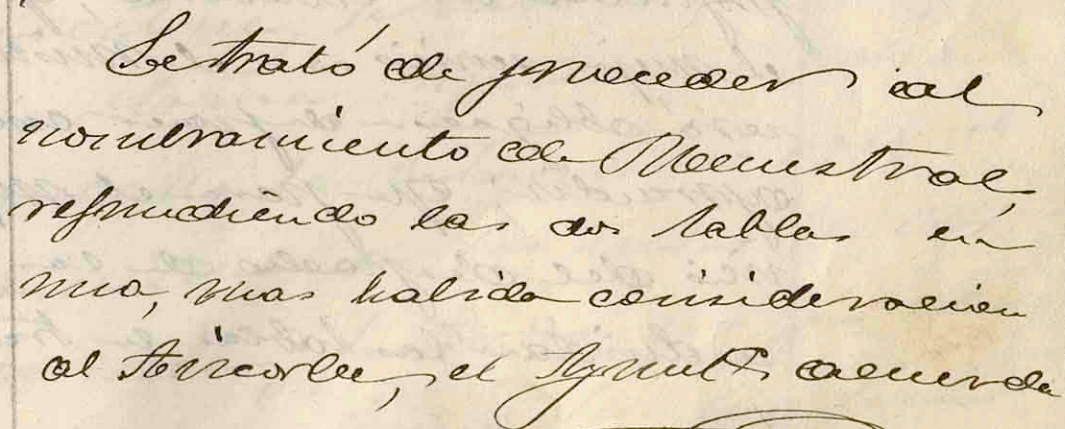 Se trató de proceder al
nombramiento de Menestral,
refundiendo las dos tablas en
una, mas habida consideracion
al, el Aynutº acuerda